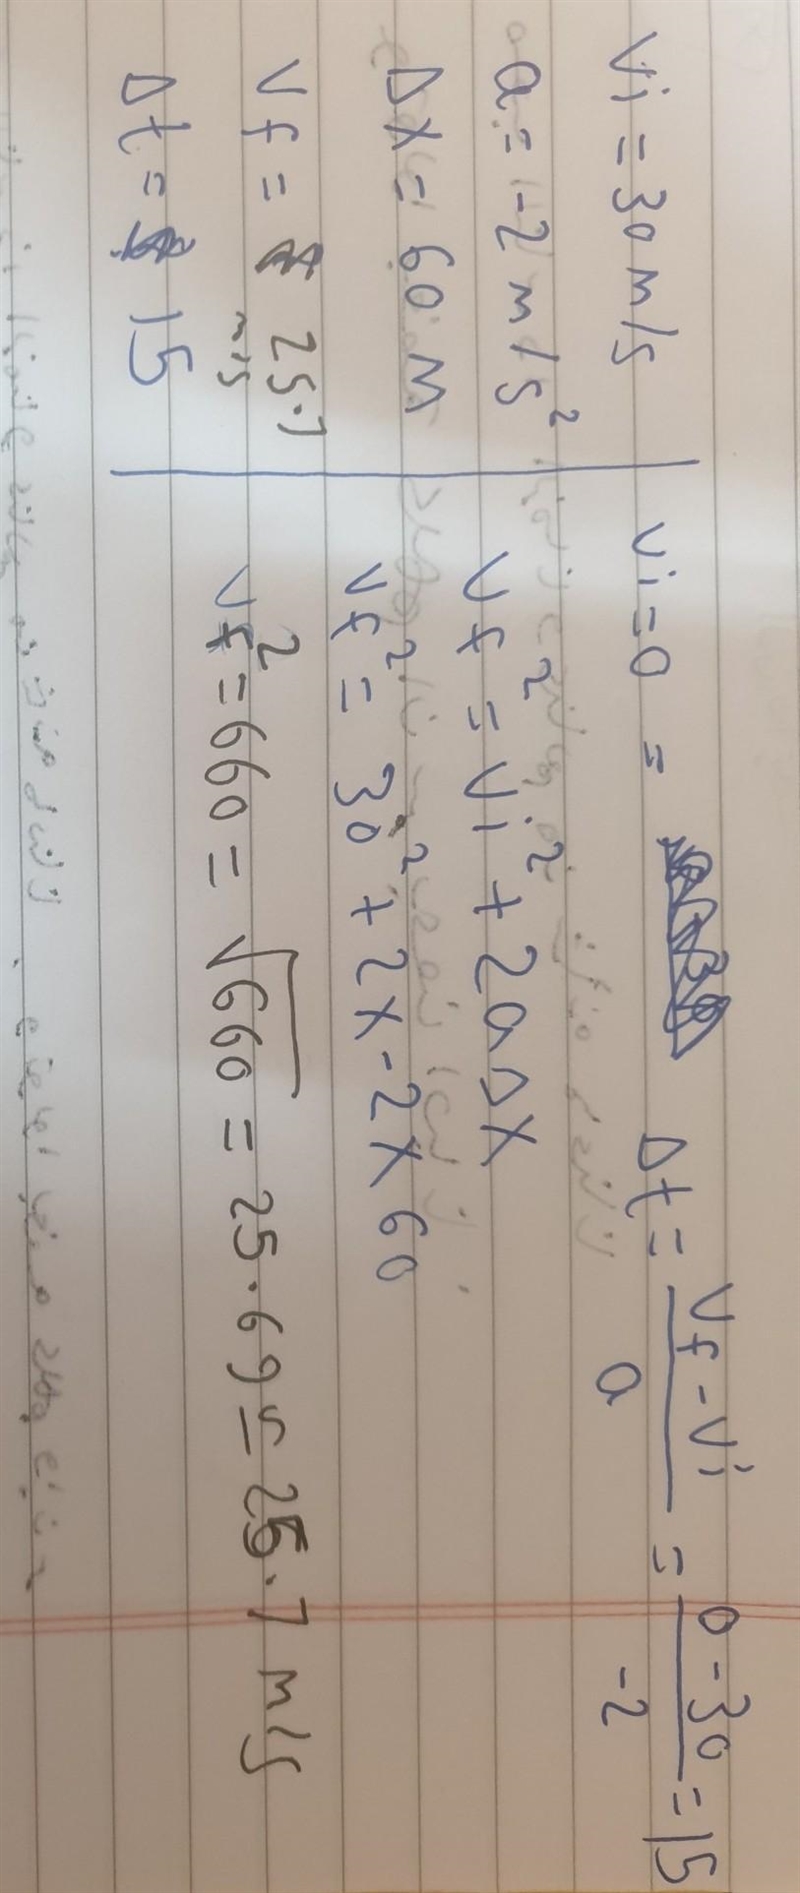 Vi = 30 m/s
a = -2 m/s²
Δx = 60 m
Vf = 25.7 m/s
Δt = 15
Vi = 0 =
Δt = (Vf - Vi)/a = (0 - 30)/-2 = 15
Vf² = Vi² + 2aΔx
Vf² = 30² + 2x-2x60
Vf² = 660 = √660 = 25.69 ≈ 25.7 m/s